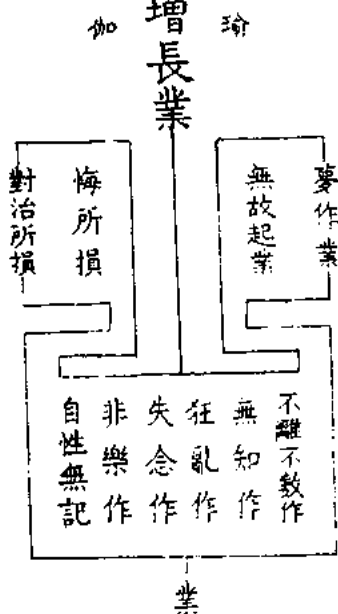 瑜伽
增長業
夢作業
無故起業
悔所損
對治所損
不離不數作
無知作
狂亂作
失念作
非樂作
自性無記
業